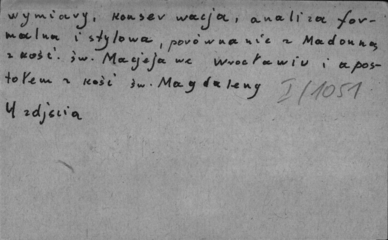 wymiary, konserwacja, analiza for-
malna i stylowa, porównanie z Madonną
z kość. św. Macieja we Wrocławiu i apos-
tołem z kość św. Magdaleny
I/1051
4 zdjęcia